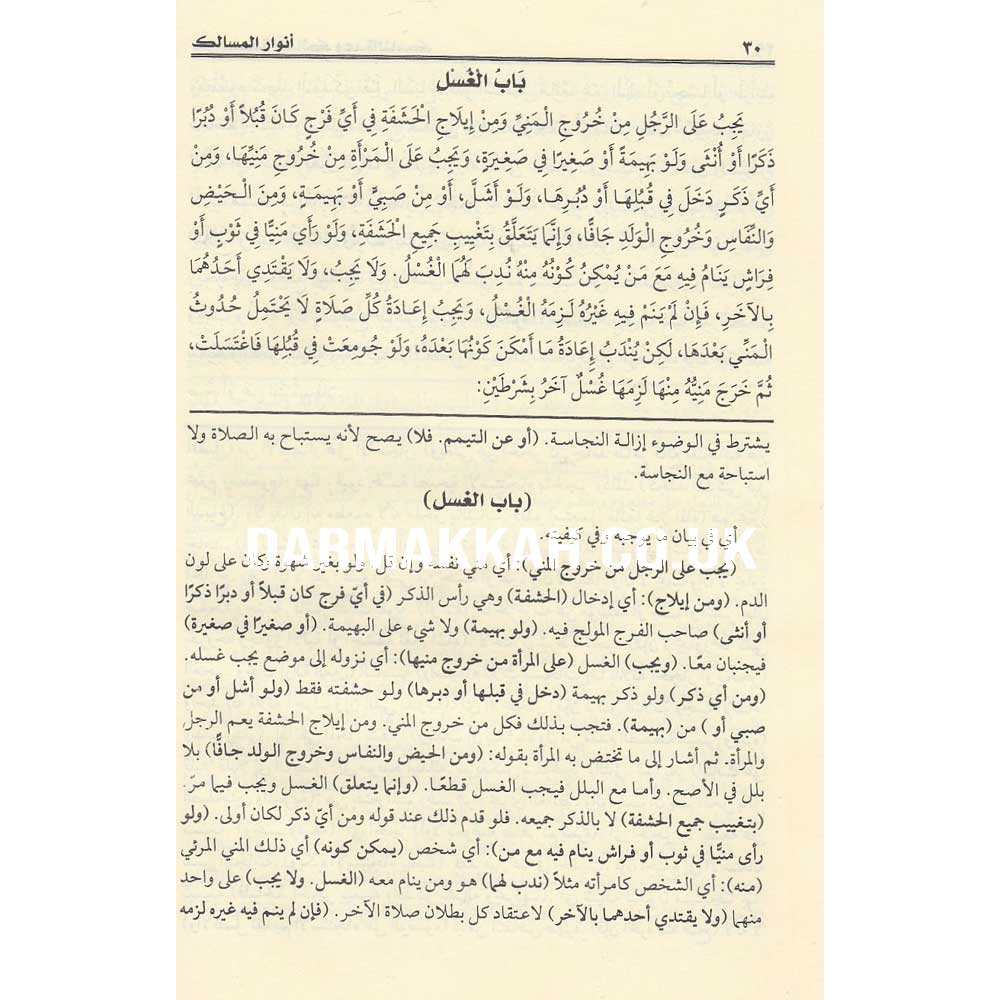 ٣٠ أنوار المسالك
بَابُ الْغُسْلِ
يَجِبُ عَلَى الرَّجُلِ مِنْ خُرُوجِ الْمَنِيِّ وَمِنْ إِيلَاجِ الْحَشَفَةِ فِي أَيِّ فَرْجٍ كَانَ قُبُلاً أَوْ دُبُرًا
ذَكَرًا أَوْ أُنْثَى وَلَوْ بَهِيمَةً أَوْ صَغِيرًا فِي صَغِيرَةٍ، وَيَجِبُ عَلَى الْمَرْأَةِ مِنْ خُرُوجِ مَنِيِّهَا، وَمِنْ
أَيِّ ذَكَرٍ دَخَلَ فِي قُبُلِهَا أَوْ دُبُرِهَا، وَلَوْ أَشَلَّ، أَوْ مِنْ صَبِيٍّ أَوْ بَهِيمَةٍ، وَمِنَ الْحَيْضِ
وَالنِّفَاسِ وَخُرُوجِ الْوَلَدِ جَافًّا، وَإِنَّمَا يَتَعَلَّقُ بِتَغْيِيبِ جَمِيعِ الْحَشَفَةِ، وَلَوْ رَأَى مَنِيًّا فِي ثَوْبٍ أَوْ
فِرَاشٍ يَنَامُ فِيهِ مَعَ مَنْ يُمْكِنُ كَوْنُهُ مِنْهُ نُدِبَ لَهُمَا الْغُسْلُ. وَلَا يَجِبُ، وَلَا يَقْتَدِي أَحَدُهُمَا
بِالْآخَرِ، فَإِنْ لَمْ يَنَمْ فِيهِ غَيْرُهُ لَزِمَهُ الْغُسْلُ، وَيَجِبُ إِعَادَةُ كُلِّ صَلَاةٍ لَا يَحْتَمِلُ حُدُوثُ
الْمَنِّي بَعْدَهَا، لَكِنْ يُنْدَبُ إِعَادَةُ مَا أَمْكَنَ كَوْنُهَا بَعْدَهُ، وَلَوْ جُومِعَتْ فِي قُبُلِهَا فَاغْتَسَلَتْ،
ثُمَّ خَرَجَ مَنِيُّهُ مِنْهَا لَزِمَهَا غُسْلٌ آخَرُ بِشَرْطَيْنِ:
يشترط في الوضوء إزالة النجاسة. (أو عن التيمم. فلا) يصح لأنه يستباح به الصلاة ولا
استباحة مع النجاسة.
(باب الغسل)
أي في بيان ما يوجبه وفي كيفيته.
DARMAKKAH.CO.UK
(يجب على الرجل من خروج المني): أي مني نفسه وإن قل ولو بغير شهوة وكان على لون
الدم. (ومن إيلاج): أي إدخال (الحشفة) وهي رأس الذكر (في أيّ فرج كان قبلاً أو دبرًا ذكرًا
أو أنثى) صاحب الفرج المولج فيه. (ولو بهيمة) ولا شيء على البهيمة. (أو صغيرًا في صغيرة)
فيجنبان معًا. (ويجب) الغسل (على المرأة من خروج منيها): أي نزوله إلى موضع يجب غسله.
(ومن أي ذكر) ولو ذكر بهيمة (دخل في قبلها أو دبرها) ولو حشفته فقط (ولو أشل أو من
صبي أو) من (بهيمة). فتجب بذلك فكل من خروج المني. ومن إيلاج الحشفة يعم الرجل
والمرأة. ثم أشار إلى ما تختض به المرأة بقوله: (ومن الحيض والنفاس وخروج الولد جافًّا) بلا
بلل في الأصح. وأما مع البلل فيجب الغسل قطعًا. (وإنما يتعلق) الغسل ويجب فيما مرّ.
(بتغييب جميع الحشفة) لا بالذكر جميعه. فلو قدم ذلك عند قوله ومن أيّ ذكر لكان أولى. (ولو
رأى منيًّا في ثوب أو فراش ينام فيه مع من): أي شخص (يمكن كونه) أي ذلك المني المرئي
(منه): أي الشخص كامرأته مثلاً (ندب لهما) هو ومن ينام معه (الغسل. ولا يجب) على واحد
منهما (ولا يقتدي أحدهما بالآخر) لاعتقاد كل بطلان صلاة الآخر. (فإن لم ينم فيه غيره لزمه